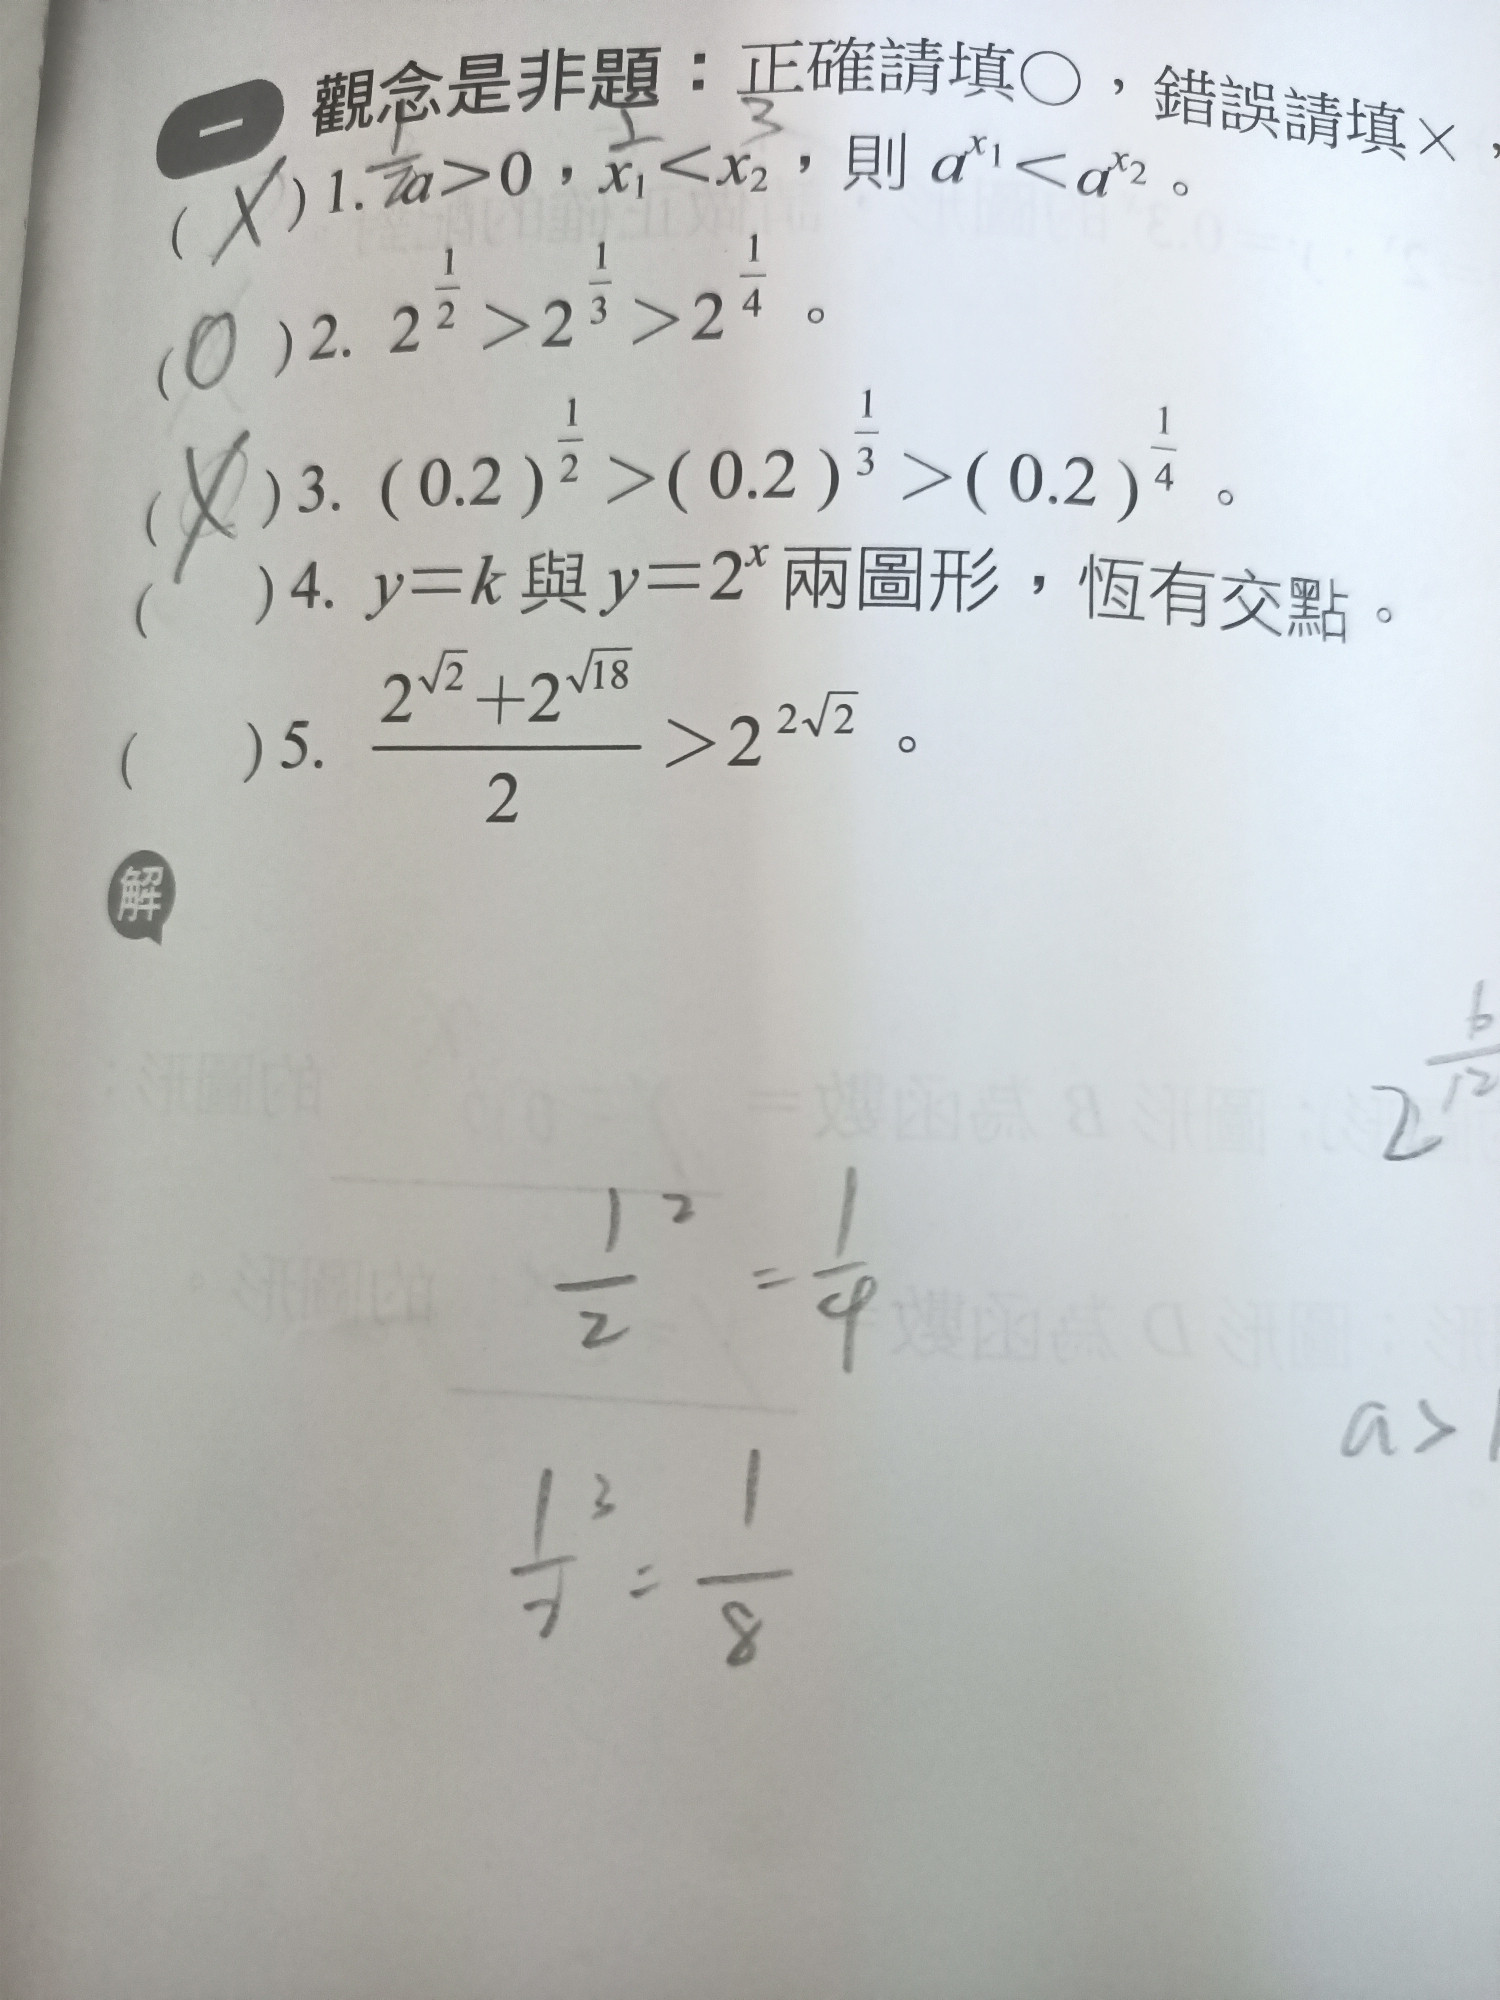 一 觀念是非題：正確請填○，錯誤請填×，
1/2 2 3
(X)1. a>0，x₁<x₂，則 a^x₁<a^x₂。
(O)2. 2^(1/2)>2^(1/3)>2^(1/4)。
(X)3. (0.2)^(1/2)>(0.2)^(1/3)>(0.2)^(1/4)。
( )4. y=k與y=2^x兩圖形，恆有交點。
( )5. (2^√2+2^√18)/2>2^(2√2)。
解
2^(6/12)
1/2 ² = 1/4
a>1
1/2 ³ = 1/8